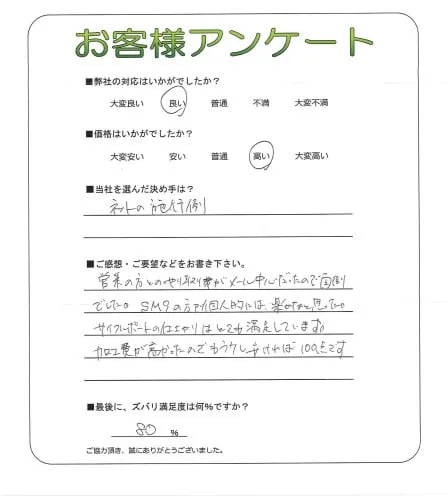 お客様アンケート
■弊社の対応はいかがでしたか？
大変良い 良い 普通 不満 大変不満
■価格はいかがでしたか？
大変安い 安い 普通 高い 大変高い
■当社を選んだ決め手は？
ネットの施行例
■ご感想・ご要望などをお書き下さい。
営業の方とのやり取りがメール中心だったので面倒
でした。SMSの方が個人的には、楽かなと思った。
サイクルポートの仕上がりはとても満足しています。
加工費が高かったのでもう少し安ければ100点です
■最後に、ズバリ満足度は何%ですか？
80 %
ご協力頂き、誠にありがとうございました。